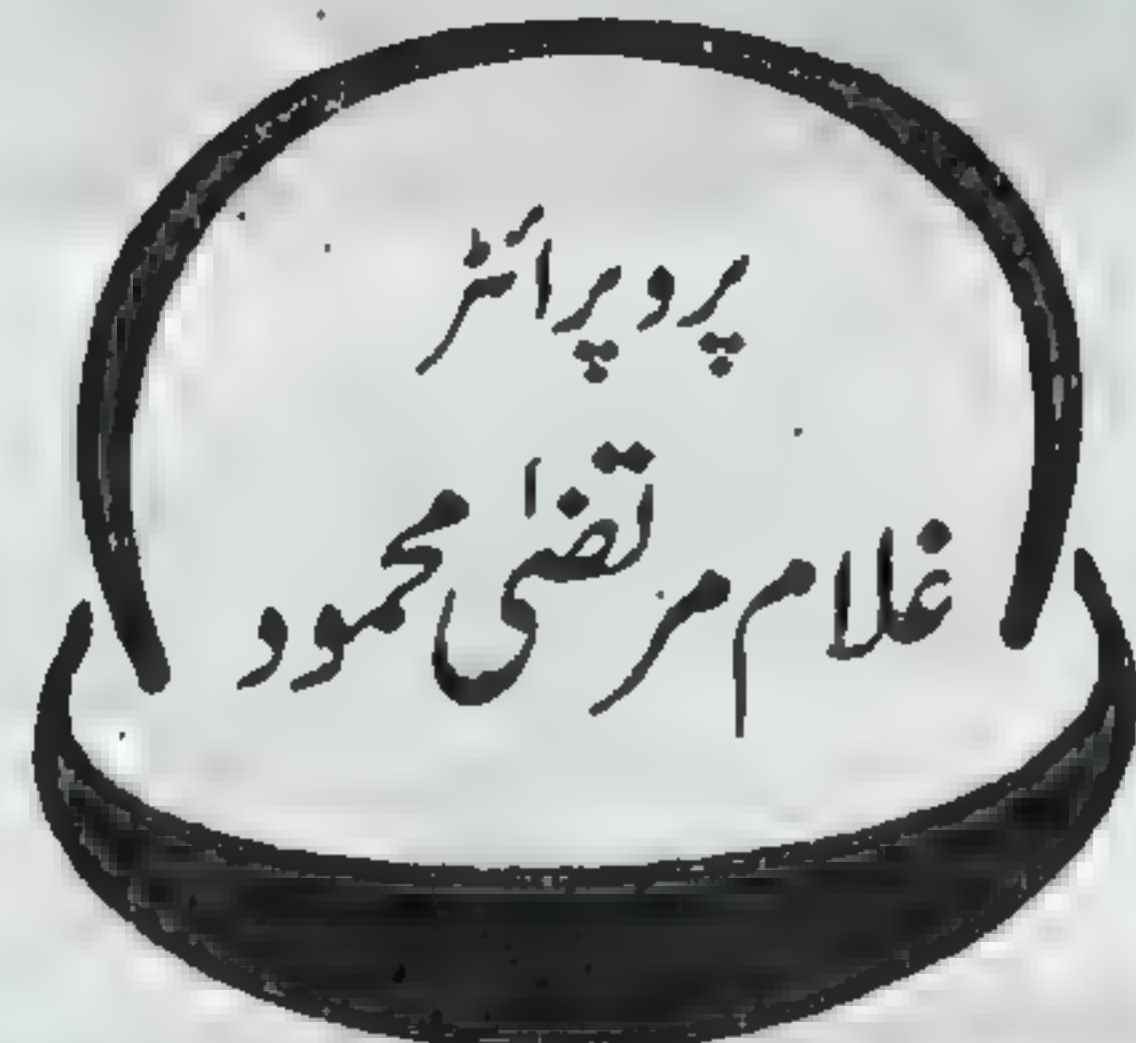 پروپرائٹر
غلام مرتضیٰ محمود